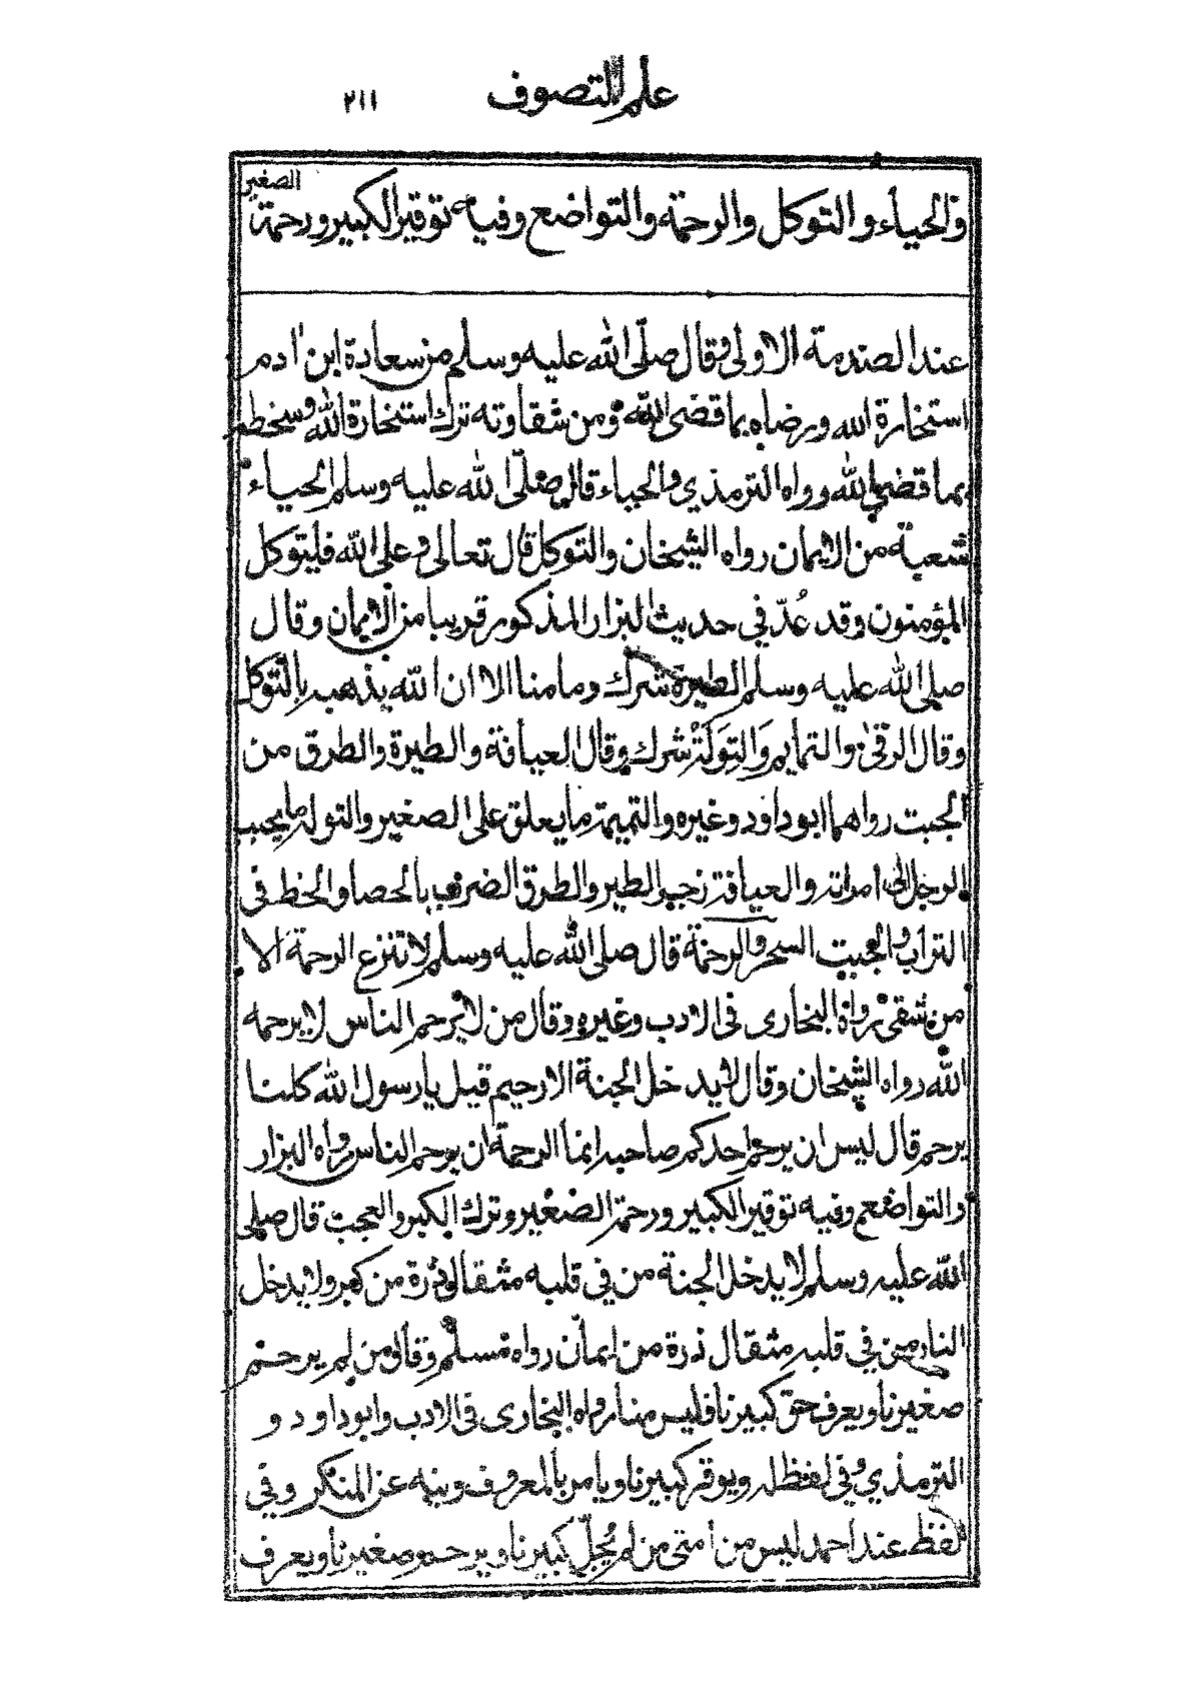 علم التصوف ٢١١
والحياء والتوكل والرحمة والتواضع وفيه توقير الكبير ورحمة الصغير
عند الصدمة الاولى وقال صلّى الله عليه وسلم من سعادة ابن اٰدم
استخارة الله ورضاه بما قضى الله ومن شقاوته ترك استخارة الله وسخطه
بما قضى الله ورواه الترمذي والحياء قال صلّى الله عليه وسلم الحياء
شعبة من الايمان رواه الشيخان والتوكل قال تعالى وعلى الله فليتوكل
المؤمنون وقد عُدّ في حديث البزار المذكور قريبا من الايمان وقال
صلى الله عليه وسلم الطيرة شرك وما منا الا ان الله يذهبه بالتوكل
وقال الرقى والتمايم وَالتِوَلَة شرك وقال العيافة والطيرة والطرق من
الجبت رواهما ابو داود وغيره والتميمة ما يعلق على الصغير والتولة ما يحبب
الرجل الى امراته والعيافة زجر الطير والطرق الضرب بالحصا والخط فى
التراب والجبت السحر والرحمة قال صلى الله عليه وسلم لا تنزع الرحمة الا
من شقى رواه البخارى فى الادب وغيره وقال من لا يرحم الناس لا يرحمه
الله رواه الشيخان وقال لا يدخل الجنة الا رحيم قيل يا رسول الله كلنا
يرحم قال ليس ان يرحم احدكم صاحبه انما الرحمة ان يرحم الناس رواه البزار
والتواضع وفيه توقير الكبير ورحمة الصغير وترك الكبر والعجب قال صلى
الله عليه وسلم لا يدخل الجنة من في قلبه مثقال ذرة من كبر ولا يدخل
النار من في قلبه مثقال ذرة من ايمان رواه مسلم وقال من لم يرحم
صغيرنا ويعرف حق كبيرنا فليس منا رواه البخارى فى الادب وابو داود و
الترمذي وفي لفظ له ويوقر كبيرنا ويامر بالمعروف وينه عن المنكر وفي
لفظ عند احمد ليس من امتى من لم يُجلّ كبيرنا ويرحم صغيرنا ويعرف